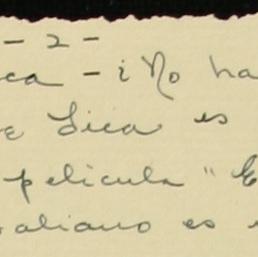 - 2 -
ca - ¿No ha
e Lica es
película " E
aliano es